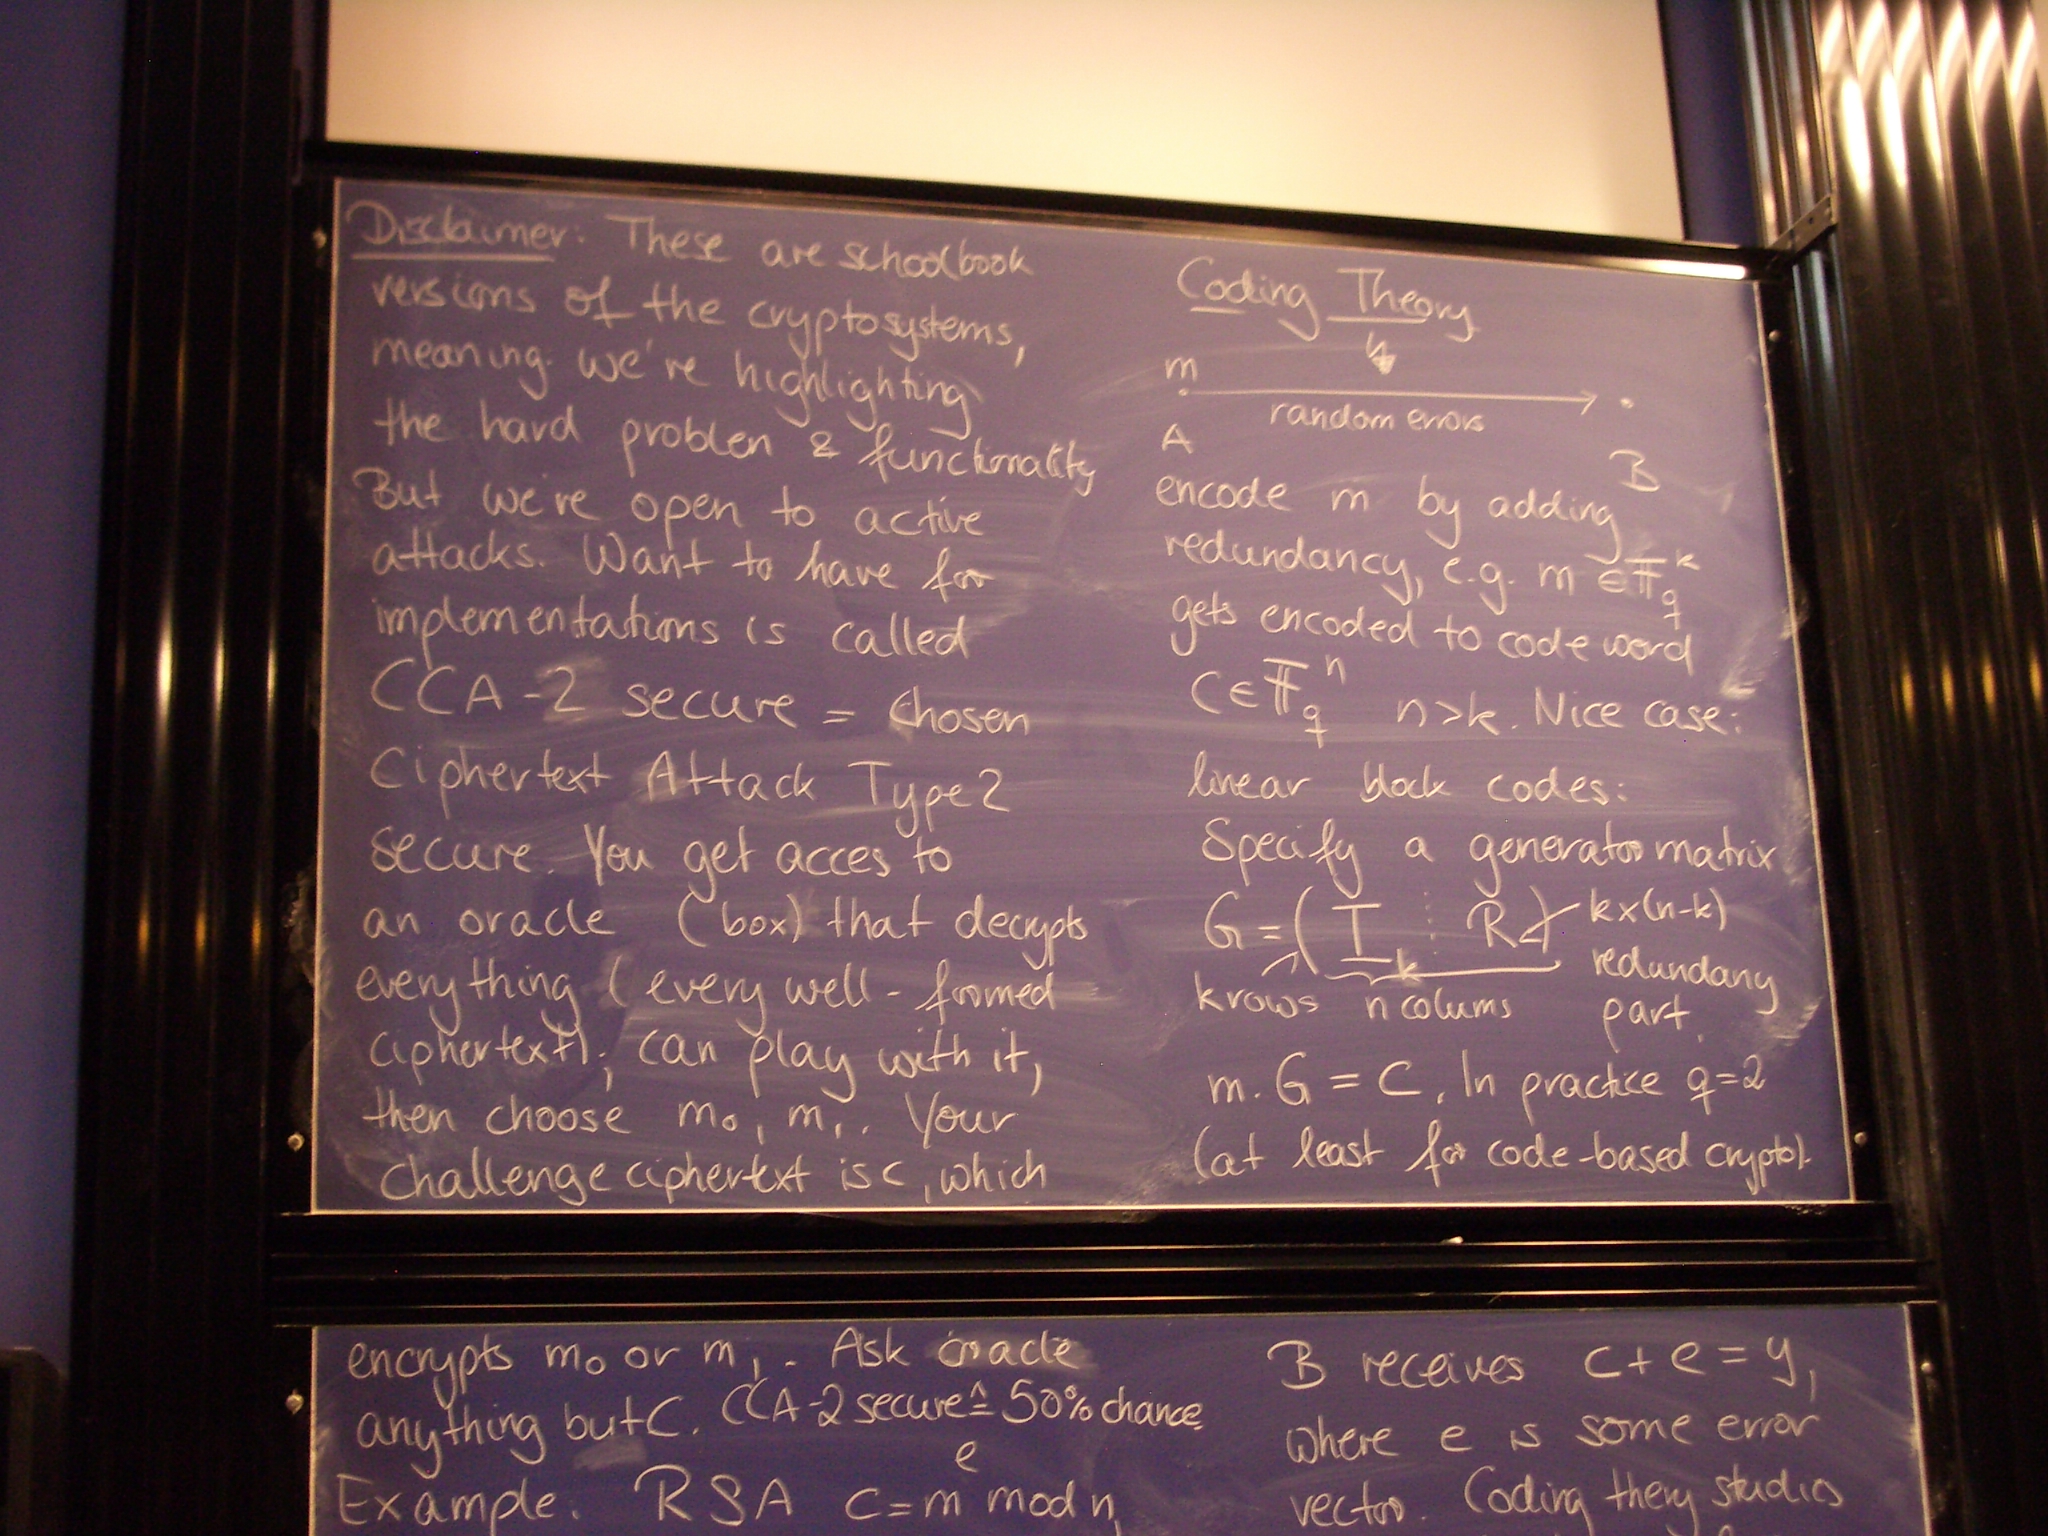 Disclaimer: These are schoolbook
versions of the cryptosystems,
meaning we're highlighting
the hard problem & functionality
But we're open to active
attacks. Want to have for
implementations is called
CCA-2 secure = chosen
Ciphertext Attack Type 2
secure. You get acces to
an oracle (box) that decrypts
everything (every well-formed
ciphertext); can play with it,
then choose m₀, m₁. Your
challenge ciphertext is c, which
encrypts m₀ or m₁. Ask oracle
anything but C. CCA-2 secure ≙ 50% chance
Example: RSA c = m^e mod n,
Coding Theory
m
random errors
A
B
encode m by adding
redundancy, e.g. m ∈ 𝔽_q^k
gets encoded to code word
C ∈ 𝔽_q^n n>k. Nice case:
linear block codes:
Specify a generator matrix
G = ( I_k ⋮ R ) k×(n-k)
redundany
k rows n colums part.
m.G = C. In practice q=2
(at least for code-based crypto).
B receives c+e=y,
where e is some error
vector. Coding theory studies